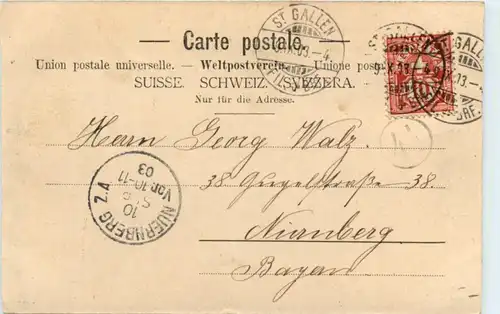 ST. GALLEN
Carte postale.
Union postale universelle. — Weltpostverein. — Unione postale
SUISSE. SCHWEIZ. SVIZZERA.
Nur für die Adresse.
Herrn Georg Walz.
38 Gugelstraße 38.
Nürnberg
Bayern
NUERNBERG 2.A
10
Vor. 10-11
03